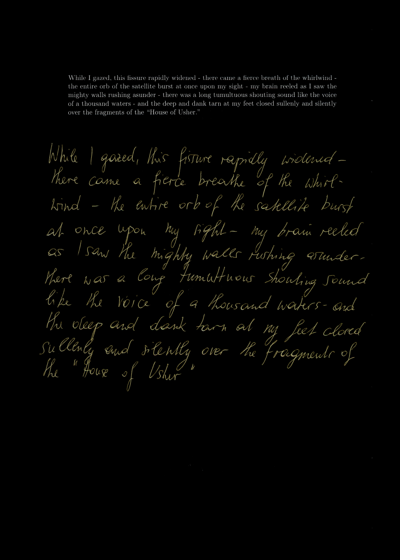 While I gazed, this fissure rapidly widened - there came a fierce breath of the whirlwind -
the entire orb of the satellite burst at once upon my sight - my brain reeled as I saw the
mighty walls rushing asunder - there was a long tumultuous shouting sound like the voice
of a thousand waters - and the deep and dank tarn at my feet closed sullenly and silently
over the fragments of the "House of Usher."
While I gazed, this fissure rapidly widened –
there came a fierce breathe of the whirl-
wind – the entire orb of the satellite burst
at once upon my sight – my brain reeled
as I saw the mighty walls rushing asunder-
there was a long tumultuous shouting sound
like the voice of a thousand waters- and
the deep and dank tarn at my feet closed
sullenly and silently over the fragments of
the "House of Usher"